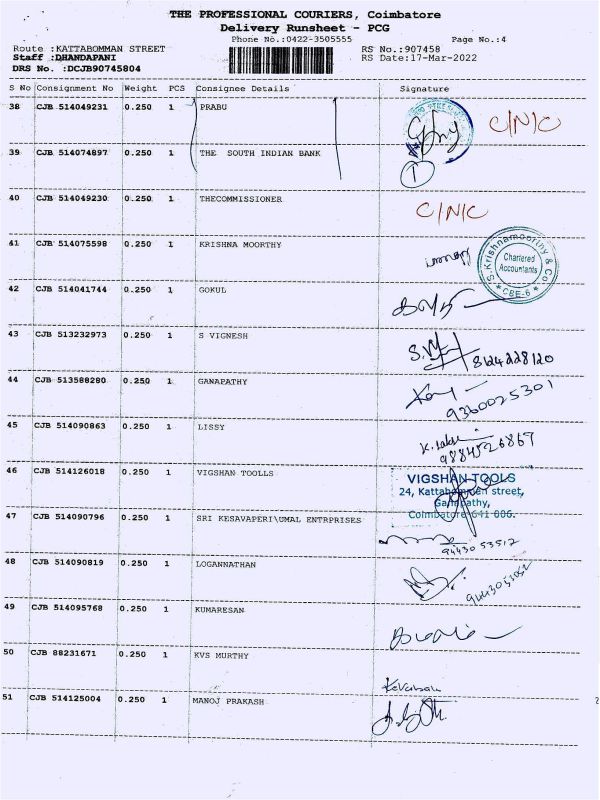 THE PROFESSIONAL COURIERS, Coimbatore
Delivery Runsheet - PCG
Phone No.:0422-3505555
Page No.:4
Route :KATTABOMMAN STREET
RS No.:907458
Staff :DHANDAPANI
RS Date:17-Mar-2022
DRS No. :DCJB90745804
S No Consignment No Weight PCS Consignee Details Signature
38 CJB 514049231 0.250 1 PRABU
C/N/C
39 CJB 514074897 0.250 1 THE SOUTH INDIAN BANK
1
40 CJB 514049230 0.250 1 THECOMMISSIONER
C/N/C
41 CJB 514075598 0.250 1 KRISHNA MOORTHY
S.Krishnamoorthy & Co
Chartered
Accountants
* CBE-6 *
42 CJB 514041744 0.250 1 GOKUL
43 CJB 513232973 0.250 1 S VIGNESH
8124228120
44 CJB 513588280 0.250 1 GANAPATHY
9360025301
45 CJB 514090863 0.250 1 LISSY
9884526867
46 CJB 514126018 0.250 1 VIGSHAN TOOLLS
VIGSHAN TOOLS
24, Kattabomman street,
Ganapathy,
Coimbatore-641 006.
47 CJB 514090796 0.250 1 SRI KESAVAPERI\UMAL ENTRPRISES
94430 53512
48 CJB 514090819 0.250 1 LOGANNATHAN
49 CJB 514095768 0.250 1 KUMARESAN
50 CJB 88231671 0.250 1 KVS MURTHY
51 CJB 514125004 0.250 1 MANOJ PRAKASH